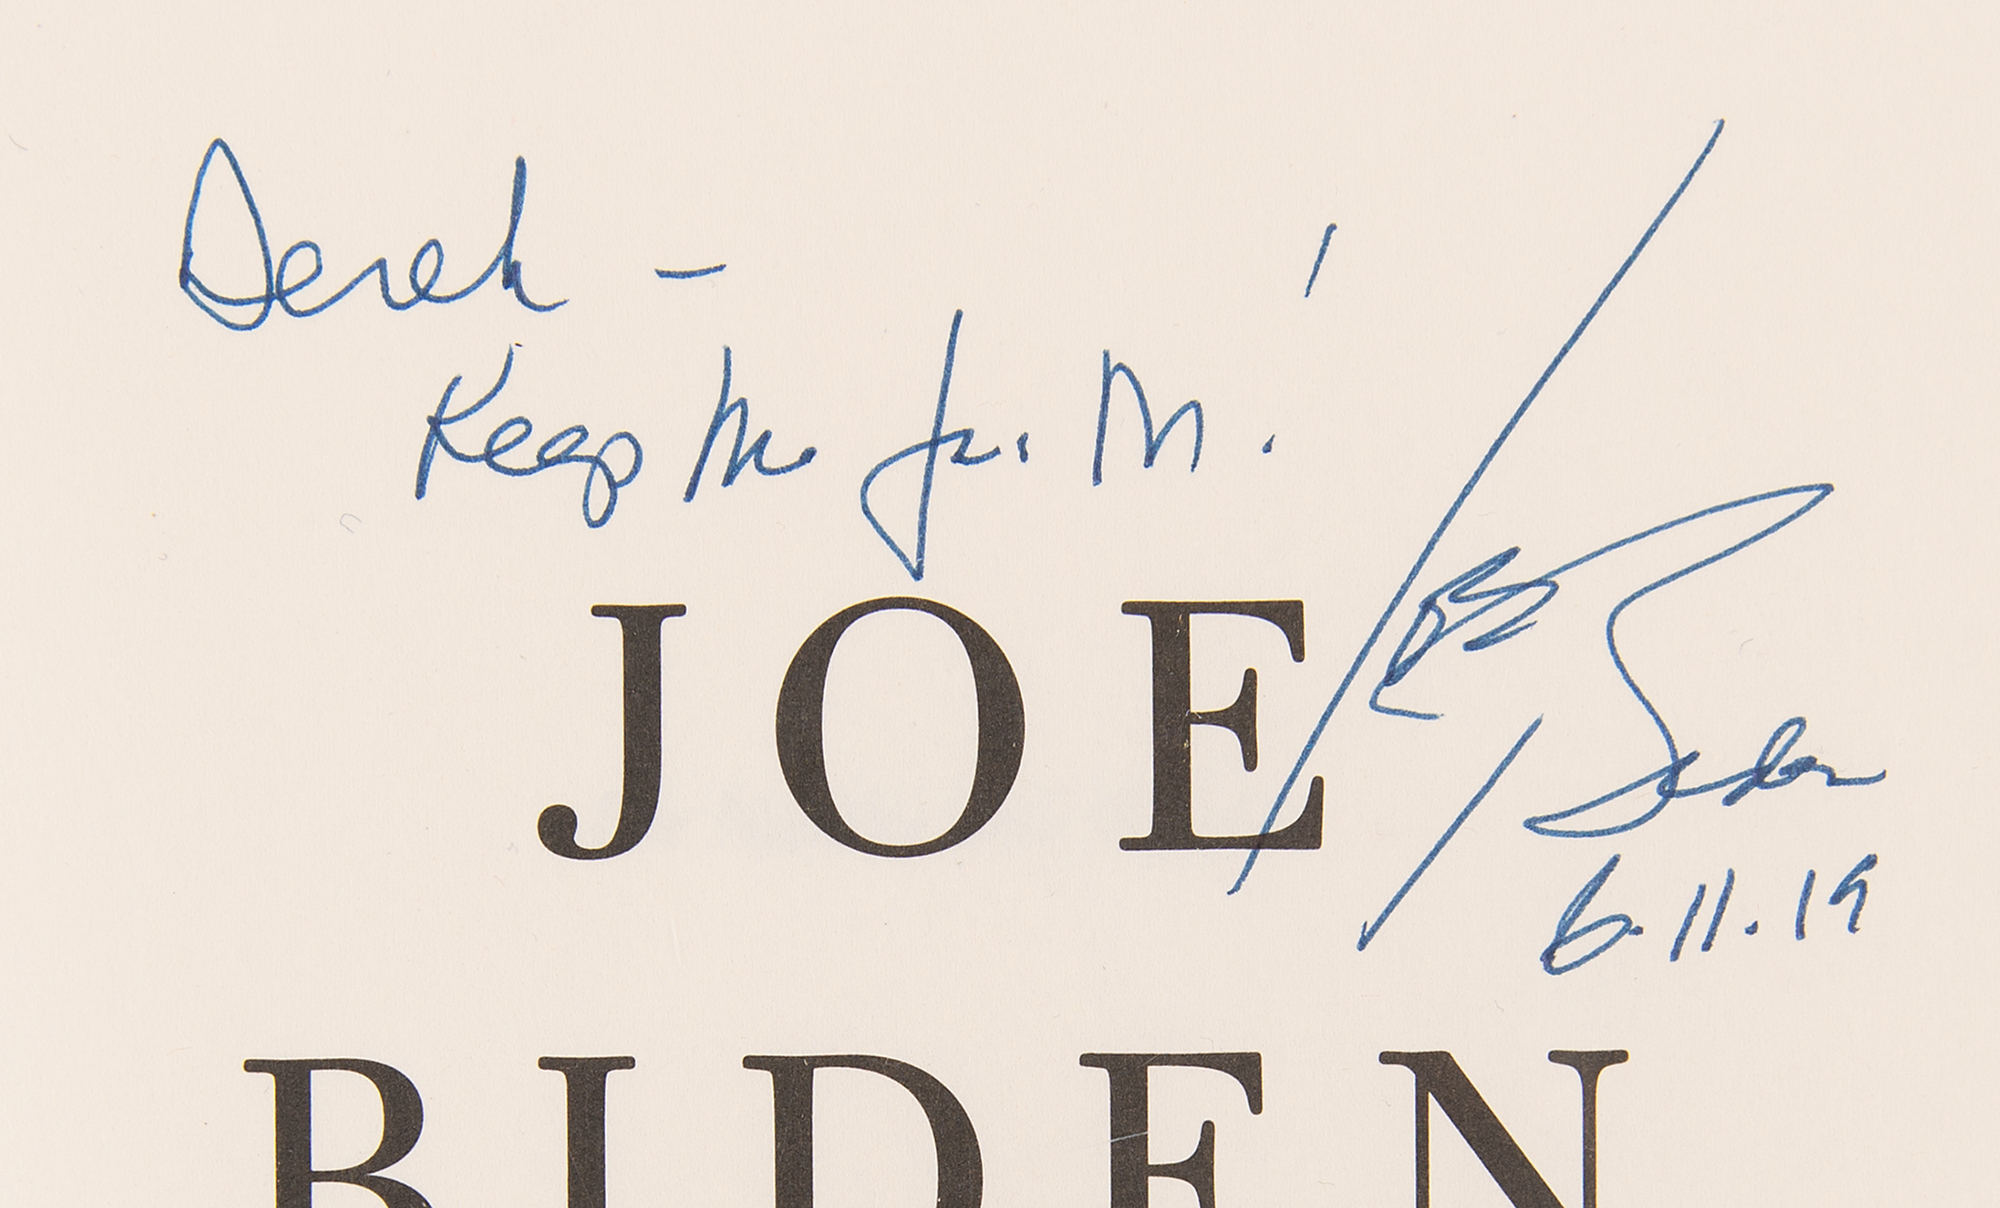 Derek –
Keep the faith!
Joe Biden
6.11.19
JOE
BIDEN